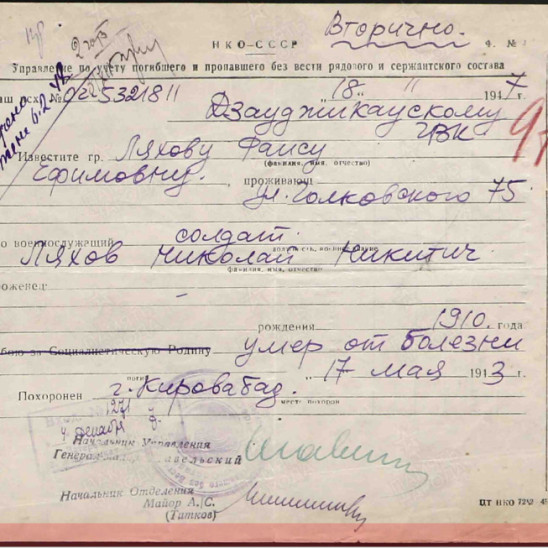 Вторично.
НКО—СССР Ф. №
Управление по учету погибшего и пропавшего без вести рядового и сержантского состава
аш исх. № 0253218 " "18 " 1947 г.
Дзауджикаускому
ГВК
Известите гр. Ляхову Фаису
(фамилия, имя, отчество)
Ефимовну. проживающ
ул. Чолковского 75
о военнослужащий солдат.
Ляхов Николай Никитич
фамилия, имя, отчество
роженец –
рождения 1910. года
бою за Социалистическую Родину умер от болезни
"17 мая 1943 г.
Похоронен г. Кировабад.
место похорон
4 декабря
Начальник Управления
Генерал
Начальник Отделения
Майор А. С.
(Татков)
ЦТ НКО